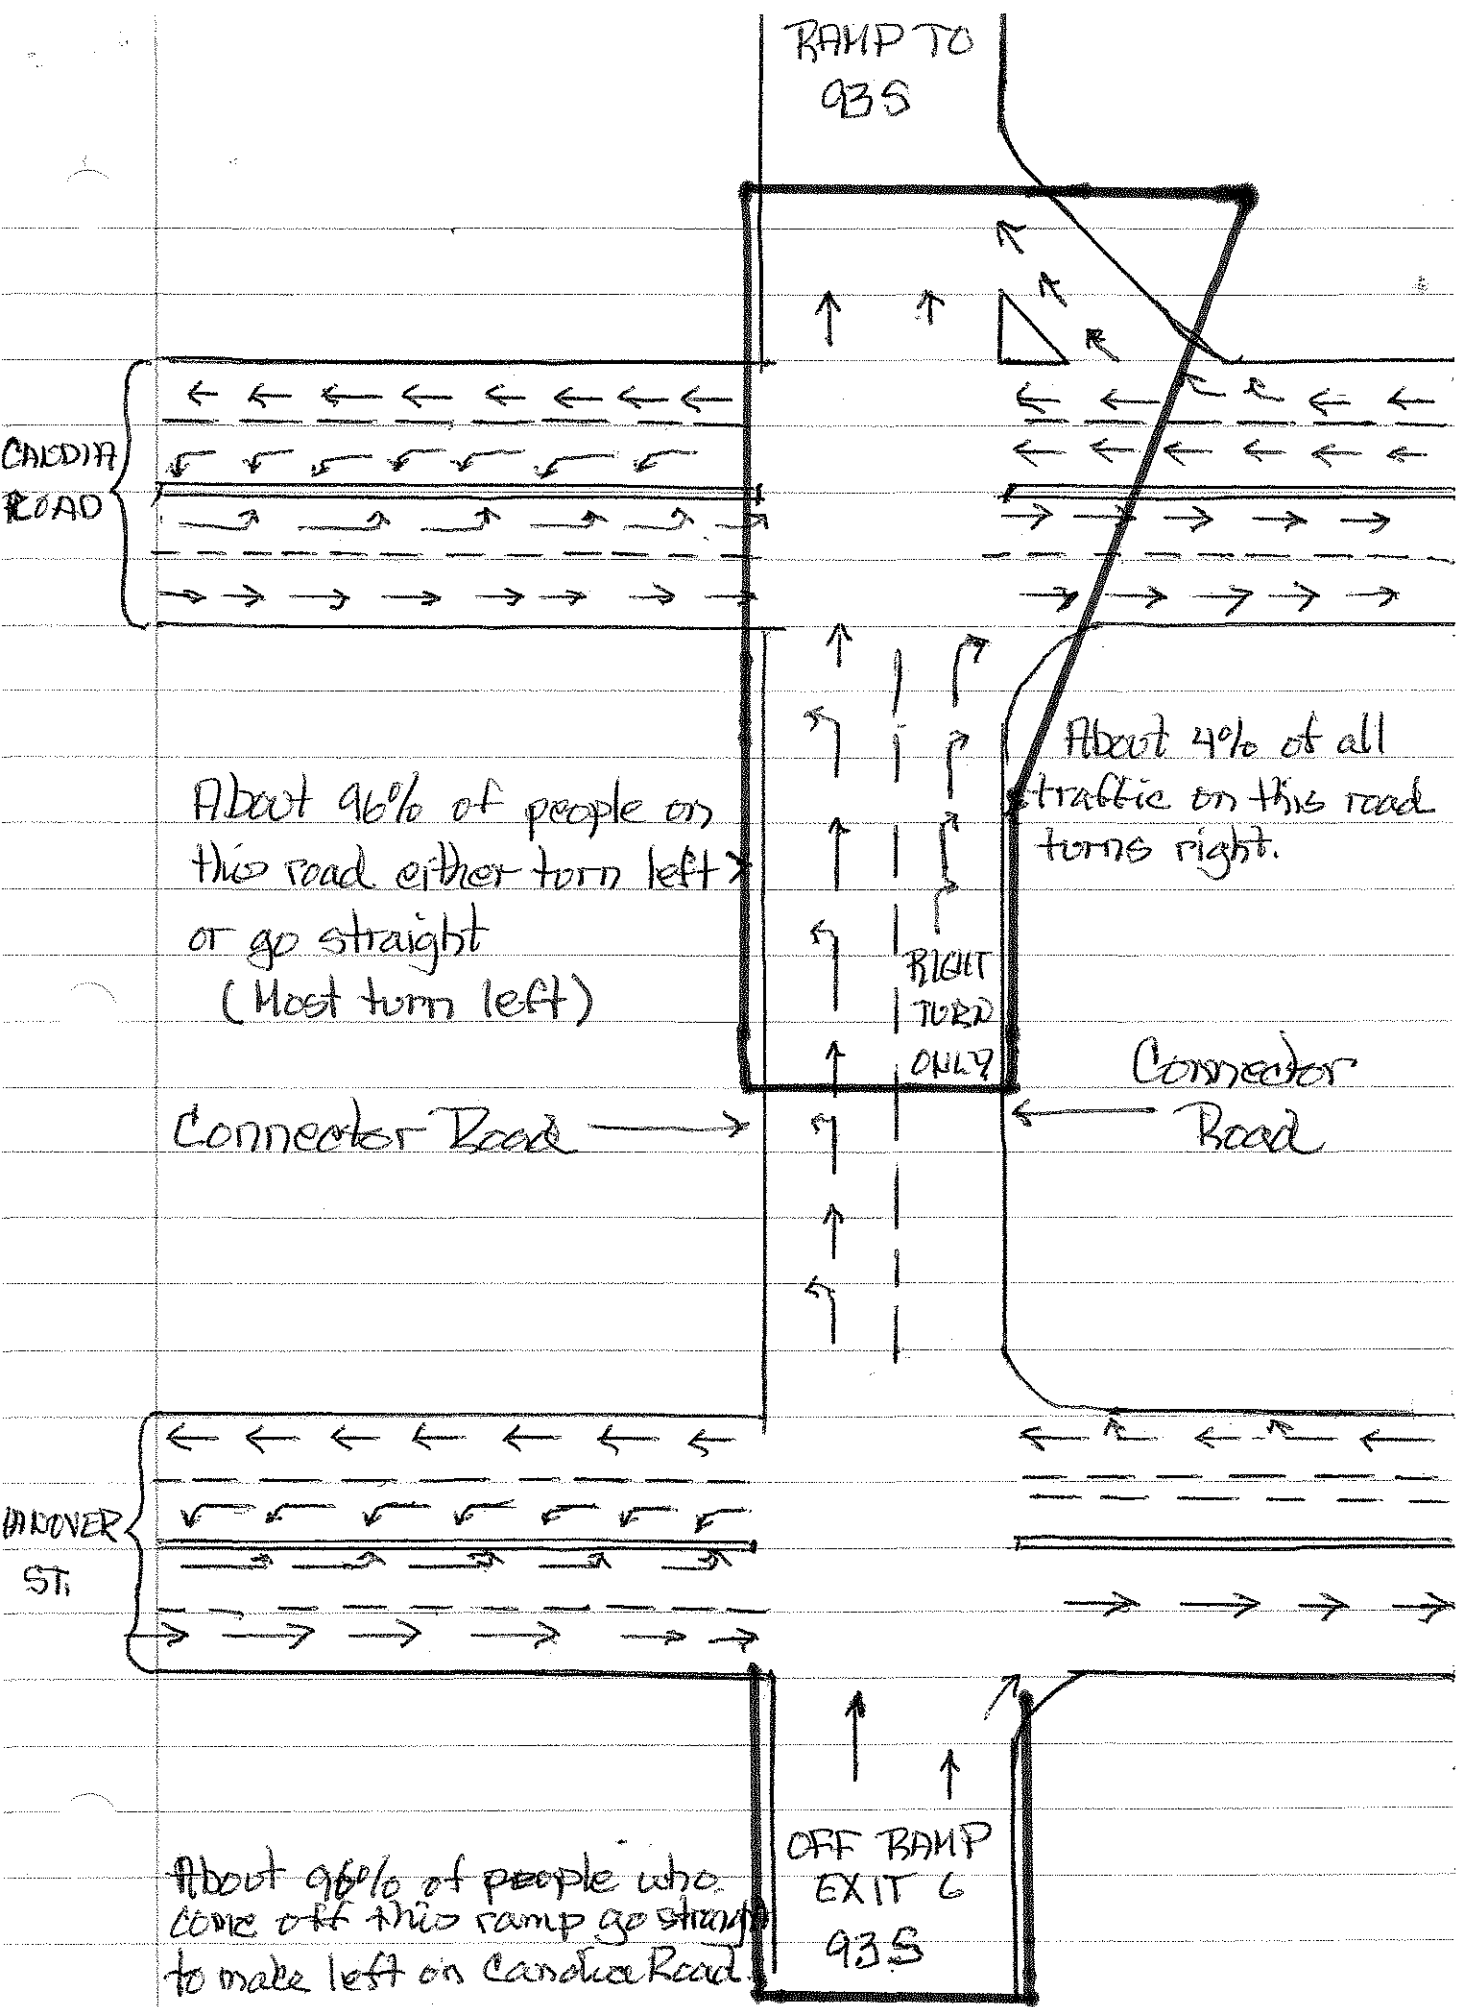 RAMP TO
93S
CANDIA
ROAD
About 96% of people on
this road either turn left
or go straight
(Most turn left)
About 4% of all
traffic on this road
turns right.
RIGHT
TURN
ONLY
Connector Road
Connector
Road
HANOVER
ST.
OFF RAMP
EXIT 6
93S
About 96% of people who
come off this ramp go straight
to make left on Candia Road.